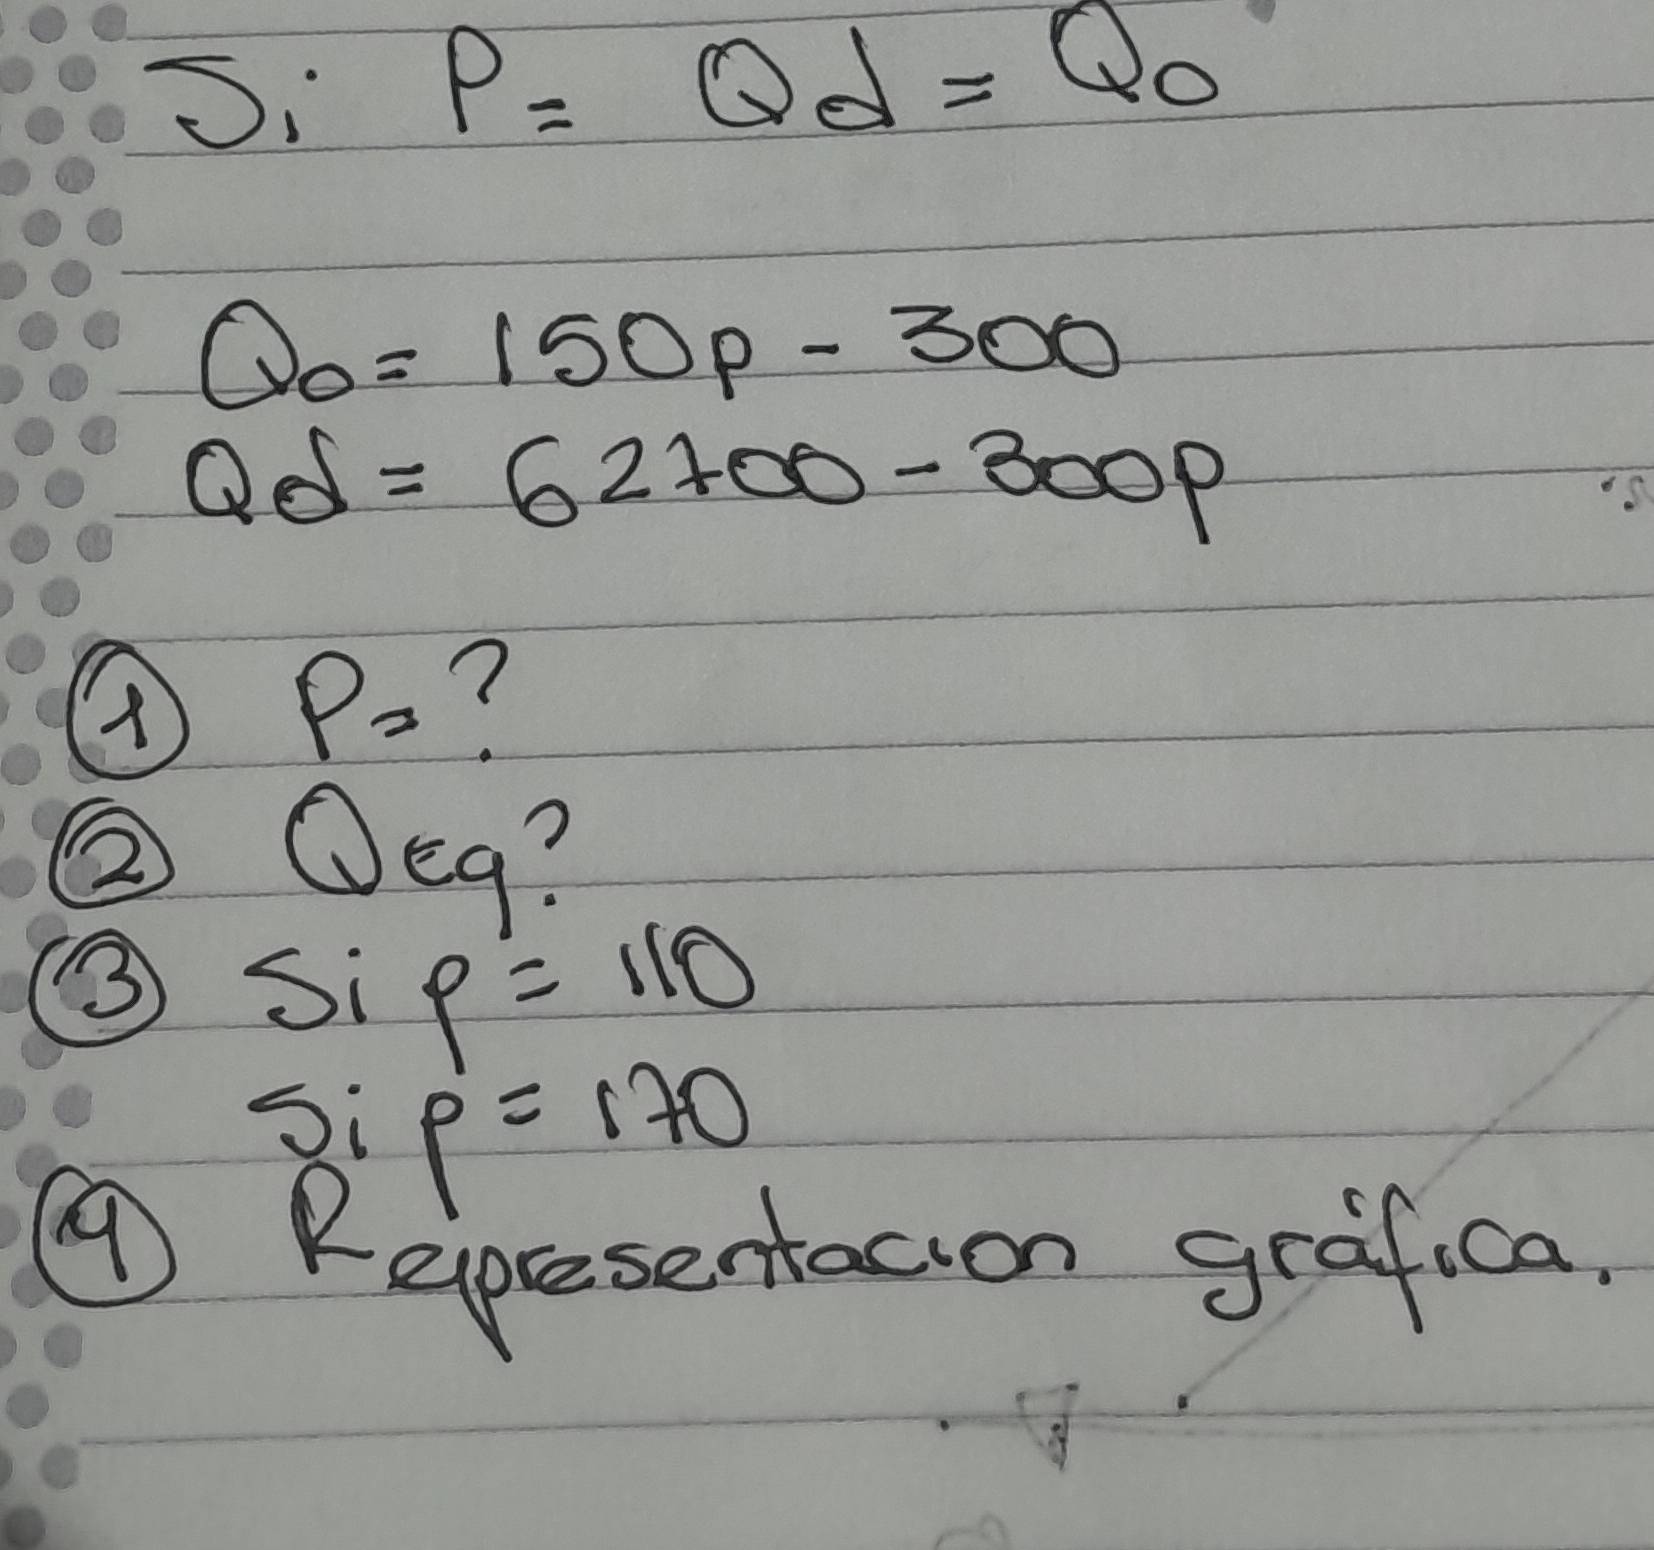 Si P= Qd = Qo
Qo = 150p - 300
Qd = 62700 - 300p
① P=?
② QEq?
③ Si p = 110
Si p = 170
④ Representacion gráfica.